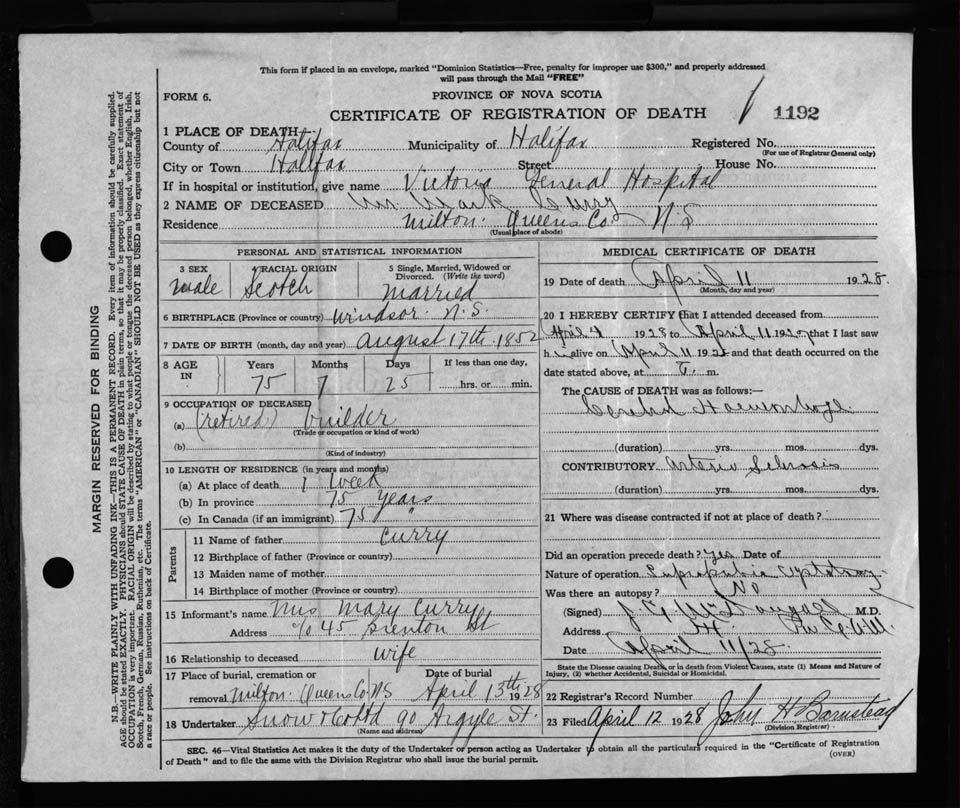 This form if placed in an envelope, marked "Dominion Statistics—Free, penalty for improper use $300," and properly addressed
will pass through the Mail "FREE"
FORM 6.
PROVINCE OF NOVA SCOTIA
CERTIFICATE OF REGISTRATION OF DEATH
1192
1 PLACE OF DEATH—
County of Halifax Municipality of Halifax Registered No.
(For use of Registrar General only)
City or Town Halifax Street House No.
If in hospital or institution, give name Victoria General Hospital
2 NAME OF DECEASED Wm Mark Curry
Residence Milton Queens Co N.S
(Usual place of abode)
PERSONAL AND STATISTICAL INFORMATION
3 SEX 4 RACIAL ORIGIN 5 Single, Married, Widowed or
Divorced. (Write the word)
male Scotch Married
6 BIRTHPLACE (Province or country) Windsor N.S.
7 DATE OF BIRTH (month, day and year) August 17th 1852
8 AGE IN Years Months Days If less than one day,
75 7 25 hrs. or min.
9 OCCUPATION OF DECEASED
(a) (retired) builder
(Trade or occupation or kind of work)
(b)
(Kind of industry)
10 LENGTH OF RESIDENCE (in years and months)
(a) At place of death 1 week
(b) In province 75 years
(c) In Canada (if an immigrant) 75 "
Parents
11 Name of father Curry
12 Birthplace of father (Province or country)
13 Maiden name of mother
14 Birthplace of mother (Province or country)
15 Informant's name Mrs Mary Curry
Address c/o 45 St
16 Relationship to deceased wife
17 Place of burial, cremation or Date of burial
removal Milton Queens Co NS April 13th 1928
18 Undertaker Snow & Co Ltd 90 Argyle St.
(Name and address)
MEDICAL CERTIFICATE OF DEATH
19 Date of death April 11 1928.
(Month, day and year)
20 I HEREBY CERTIFY that I attended deceased from
April 4 1928 to April 11 192 that I last saw
h alive on April 11 1928 and that death occurred on the
date stated above, at m.
The CAUSE of DEATH was as follows:—
Cerebral Haemorrhage
(duration) yrs. mos. dys.
CONTRIBUTORY Arterio Sclerosis
(duration) yrs. mos. dys.
21 Where was disease contracted if not at place of death?
Did an operation precede death? Yes Date of
Nature of operation Suprapubic Cystotomy
Was there an autopsy? No
(Signed) M.D.
Address
Date April 11/28
State the Disease causing Death, or in death from Violent Causes, state (1) Means and Nature of
Injury, (2) whether Accidental, Suicidal or Homicidal.
22 Registrar's Record Number
23 Filed April 12 1928 John H Barnstead
(Division Registrar)
SEC. 46—Vital Statistics Act makes it the duty of the Undertaker or person acting as Undertaker to obtain all the particulars required in the "Certificate of Registration
of Death" and to file the same with the Division Registrar who shall issue the burial permit.
(OVER)
MARGIN RESERVED FOR BINDING
N.B.—WRITE PLAINLY WITH UNFADING INK—THIS IS A PERMANENT RECORD. Every item of information should be carefully supplied.
AGE should be stated EXACTLY. PHYSICIANS should STATE CAUSE OF DEATH in plain terms, so that it may be properly classified. Exact statement of
OCCUPATION is very important. RACIAL ORIGIN will be described by stating to what people or tongue the deceased person belonged, whether English, Irish,
Scotch, French, German, Russian, Ruthenian, etc. The terms "AMERICAN" or "CANADIAN" SHOULD NOT BE USED as they express citizenship but not
a race or people. See instructions on back of Certificate.